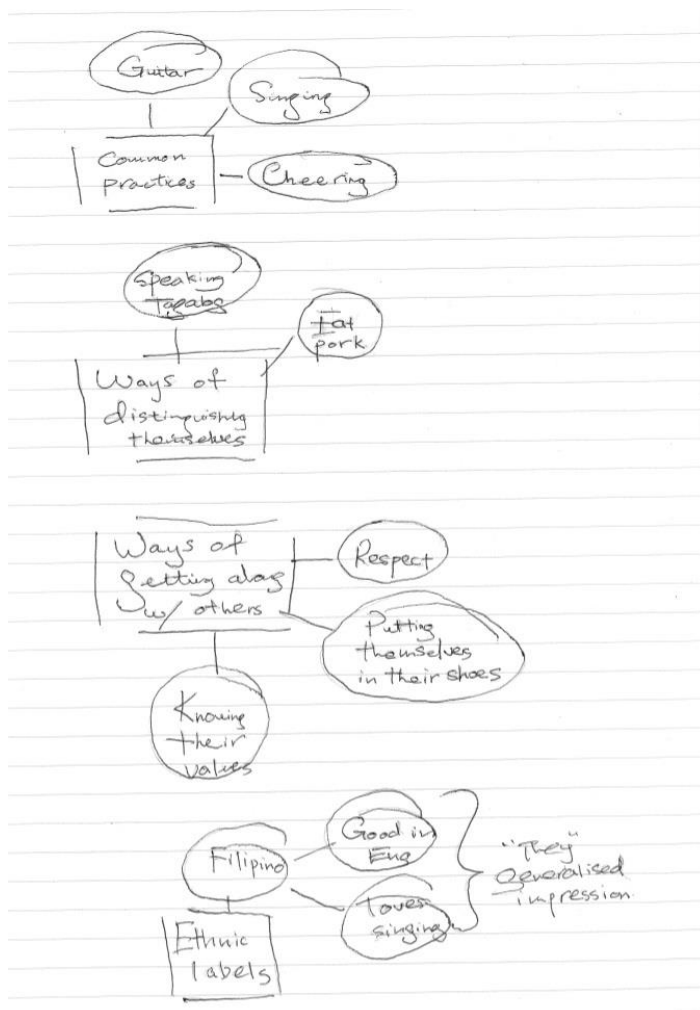 Guitar
Singing
Common
practices
Cheering
Speaking
Tagalog
Eat
pork
Ways of
distinguishing
themselves
Ways of
getting along
w/ others
Respect
Putting
themselves
in their shoes
Knowing
their
values
Good in
Eng
Filipino
loves
singing
"They"
generalised
impression
Ethnic
labels